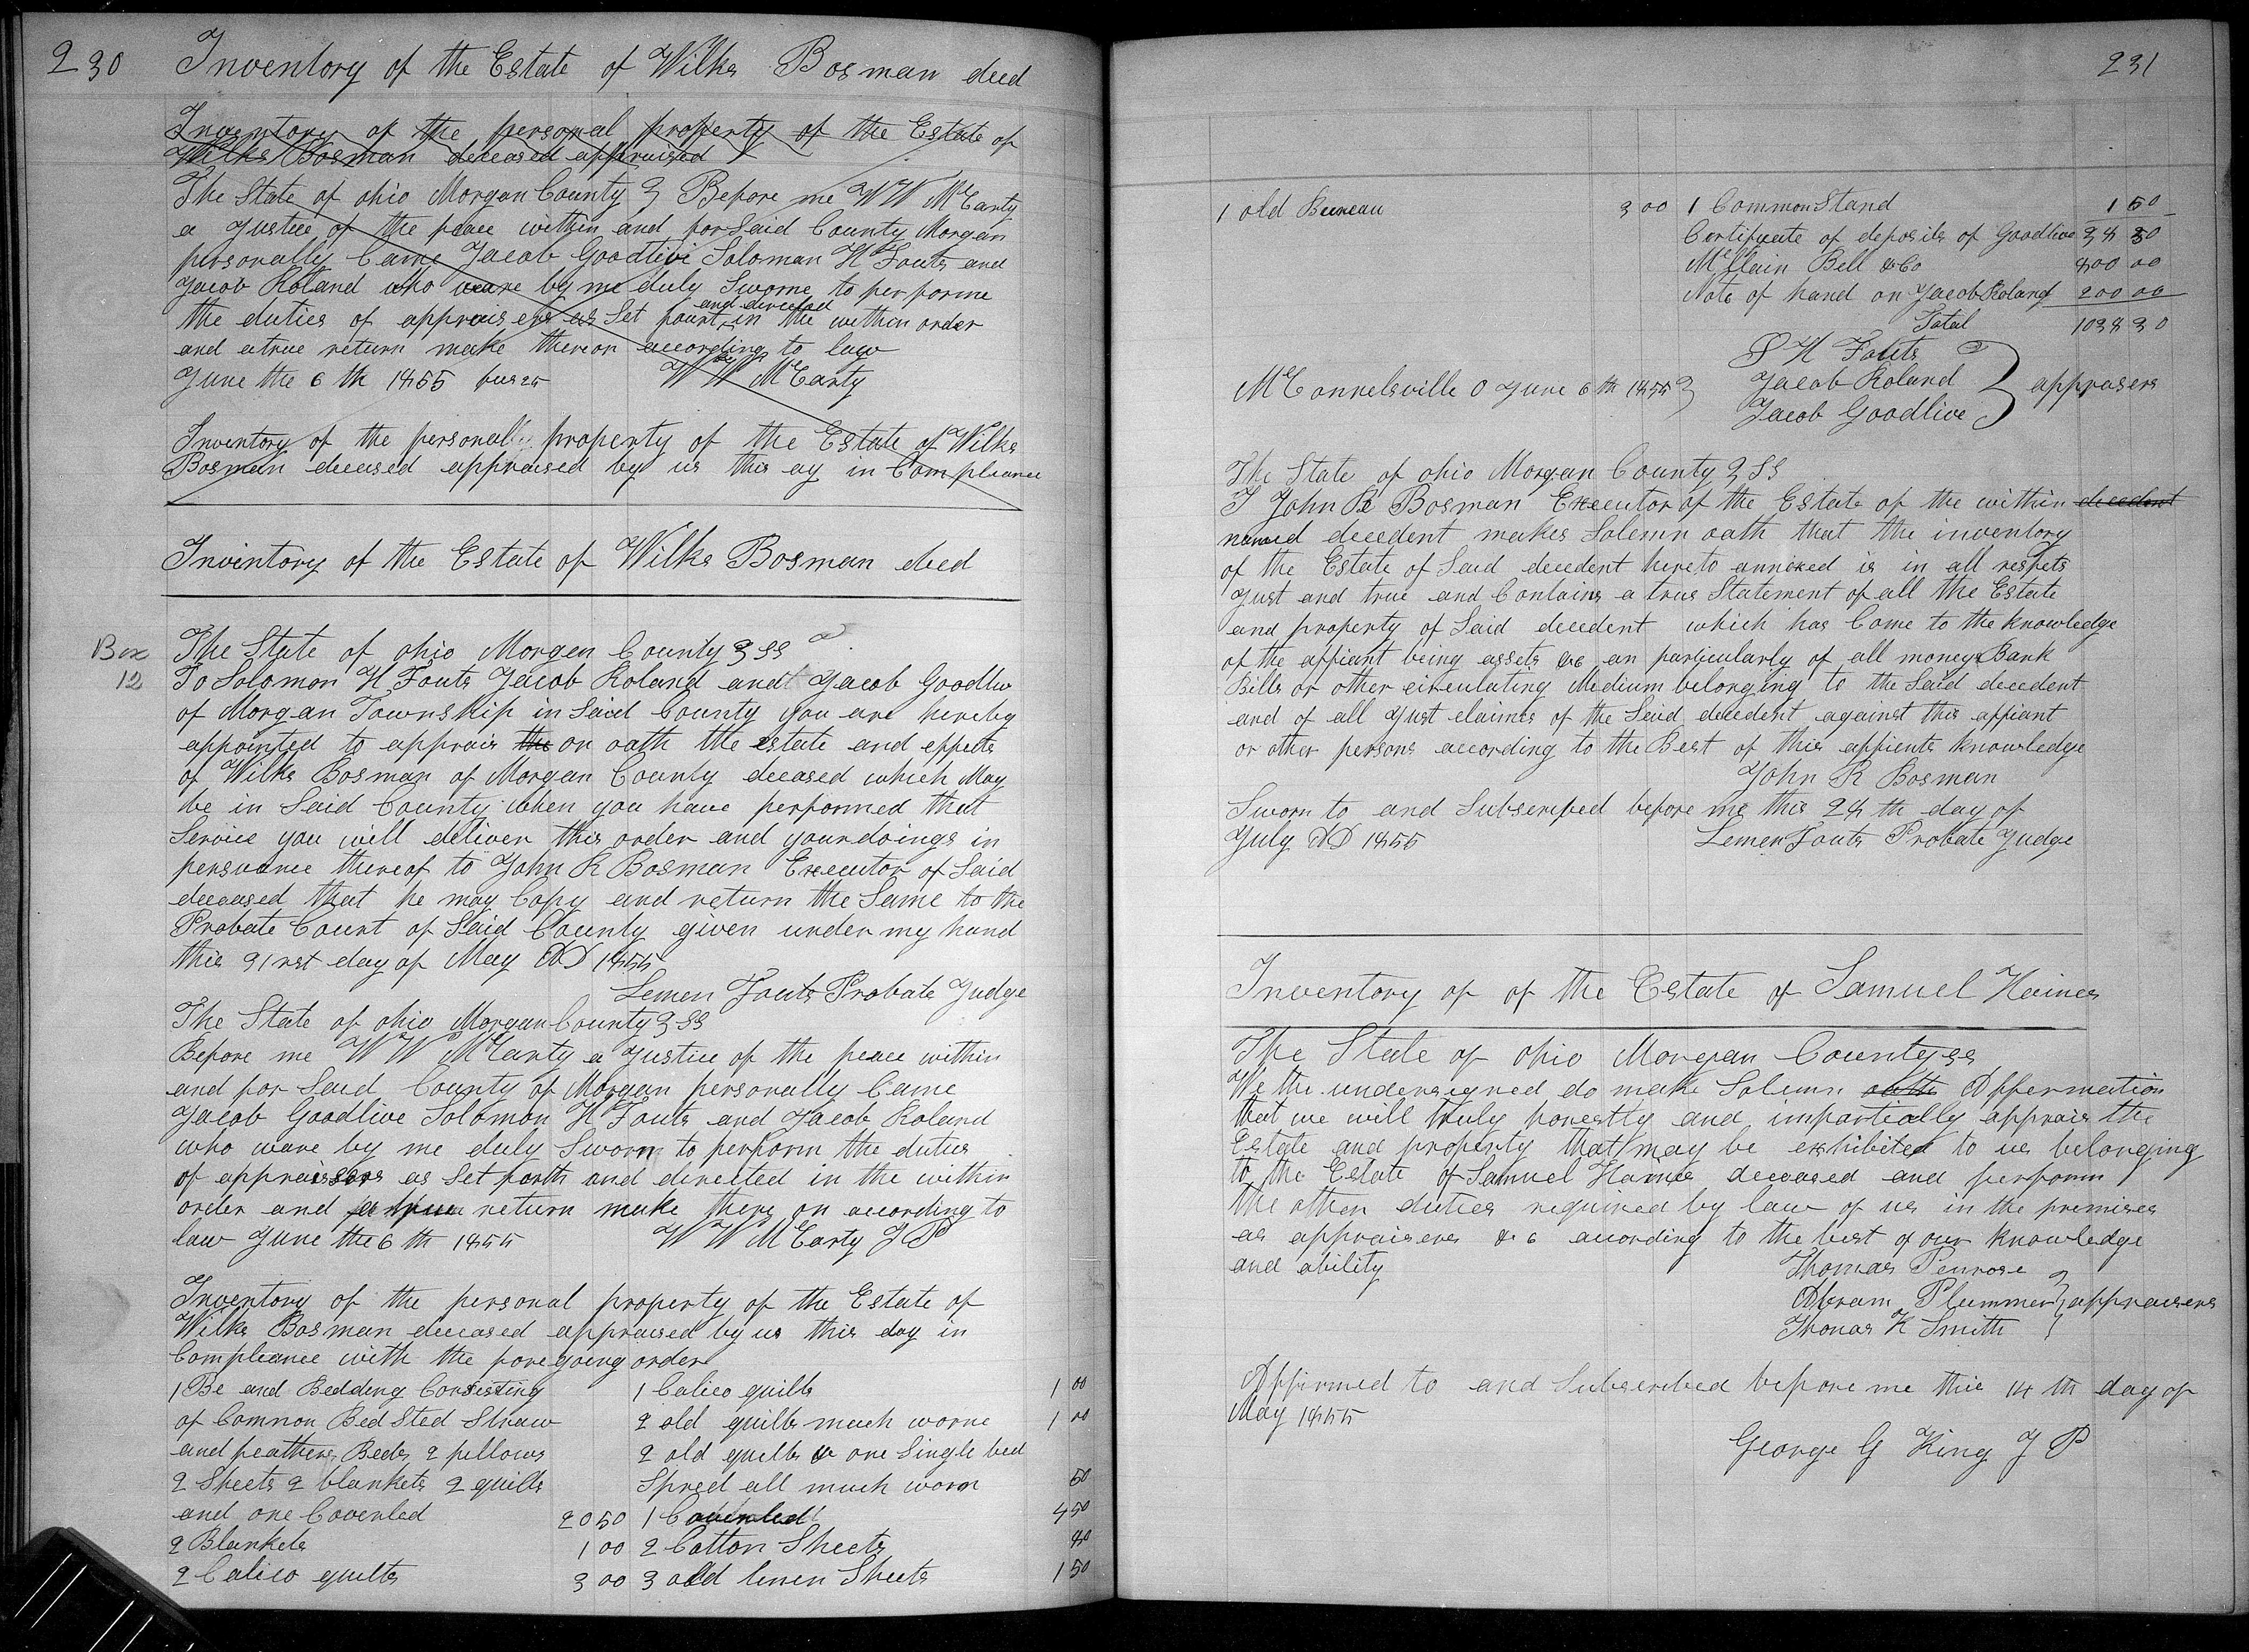 230 Inventory of the Estate of Wilks Bosman decd
Inventory of the personal property of the Estate of
Wilks Bosman deceased appraised
The State of ohio Morgan County } Before me W W McCarty
a Justice of the peace within and for Said County Morgan
personally Came Jacob Goodlive Soloman H Fouts and
Jacob Roland who ware by me duly Sworne to performe
and directed
the duties of appraisers as Set fourt in the within order
and a true return make thereon according to law
June the 6 th 1855 W W McCarty
Inventory of the personally property of the Estate of Wilks
Bosman deceased appraised by us this ay in Compleance
Invintory of the Estate of Wilks Bosman decd
Box
12
The State of ohio Morgan County } SS
To Solomon H Fouts Jacob Roland and Jacob Goodliv
of Morgan Township in Said County you are hereby
appointed to apprais the on oath the estate and effects
of Wilks Bosman of Morgan County deceased which May
be in Said County when you have performed that
Service you will deliver this order and your doings in
persuance thereof to John R Bosman Executor of Said
deceased that he may Copy and return the Same to the
Probate Court of Said County given under my hand
this 31rst day of May AD 1855
Lemen Fouts Probate Judge
The State of ohio Morgan County } SS
Before me W W McCarty a Justice of the peace within
and for Said County of Morgan personally Came
Jacob Goodlive Solomon H Fouts and Jacob Roland
who ware by me duly Sworn to perform the duties
of appraissors as Set forth and directed in the within
order and a true return make there on according to
law June the 6 th 1855 W W McCarty J P
Inventory of the personal property of the Estate of
Wilks Bosman deceased appraised by us this day in
Compleance with the foregoing order
1 Be and Bedding Consisting
of Common Bed Sted Straw
and feathers Beds 2 pillows
2 Sheets 2 blankets 2 quilts
and one Coverled 20 50
2 Blankets 1 00
2 Calico quilts 3 00
1 Calico quilts 1 00
2 old quilts much worne 1 00
2 old quilts & one Single bed
Spred all much worn 50
1 Coverled 4 50
2 Cotton Sheets 80
3 old linen Sheets 1 50
231
1 old Bureau 3 00
1 Common Stand 1 50
Certificate of deposits of Goodlive 38 30
McClain Bell & Co 800 00
Note of hand on Jacob Roland 200 00
Total 1038 30
McConnelsville O June 6 th 1855 }
S H Fouts
Jacob Roland } apprasers
Jacob Goodlive
The State of ohio Morgan County } SS
I John R Bosman Executor of the Estate of the within decedent
named decedent makes Solemn oath that the inventory
of the Estate of Said decedent hereto annexed is in all respets
Just and true and Contains a true Statement of all the Estate
and property of Said decedent which has Come to the knowledge
of the affiant being assets &c an particularly of all moneys Bank
Bills or other circulating Medium belonging to the Said decedent
and of all Just claims of the Said decedent against this affiant
or other persons according to the Best of this affients knowledge
John R Bosman
Sworn to and Subscribed before me this 28 th day of
July AD 1855 Lemen Fouts Probate Judge
Inventory of of the Estate of Samuel Haines
The State of ohio Morgan County ss
We the undersigned do make Solemn oath Affermation
that we will truly honestly and impartially apprais the
Estate and property that may be exhibited to us belonging
to the Estate of Samuel Haines deceased and perform
the other duties required by law of us in the premises
as appraisers &c according to the best of our knowledge
and ability
Thomas Penrose
Abram Plummer } appraisers
Thomas K Smith
Affirmed to and Subscribed before me this 14 th day of
May 1855
George G King J P